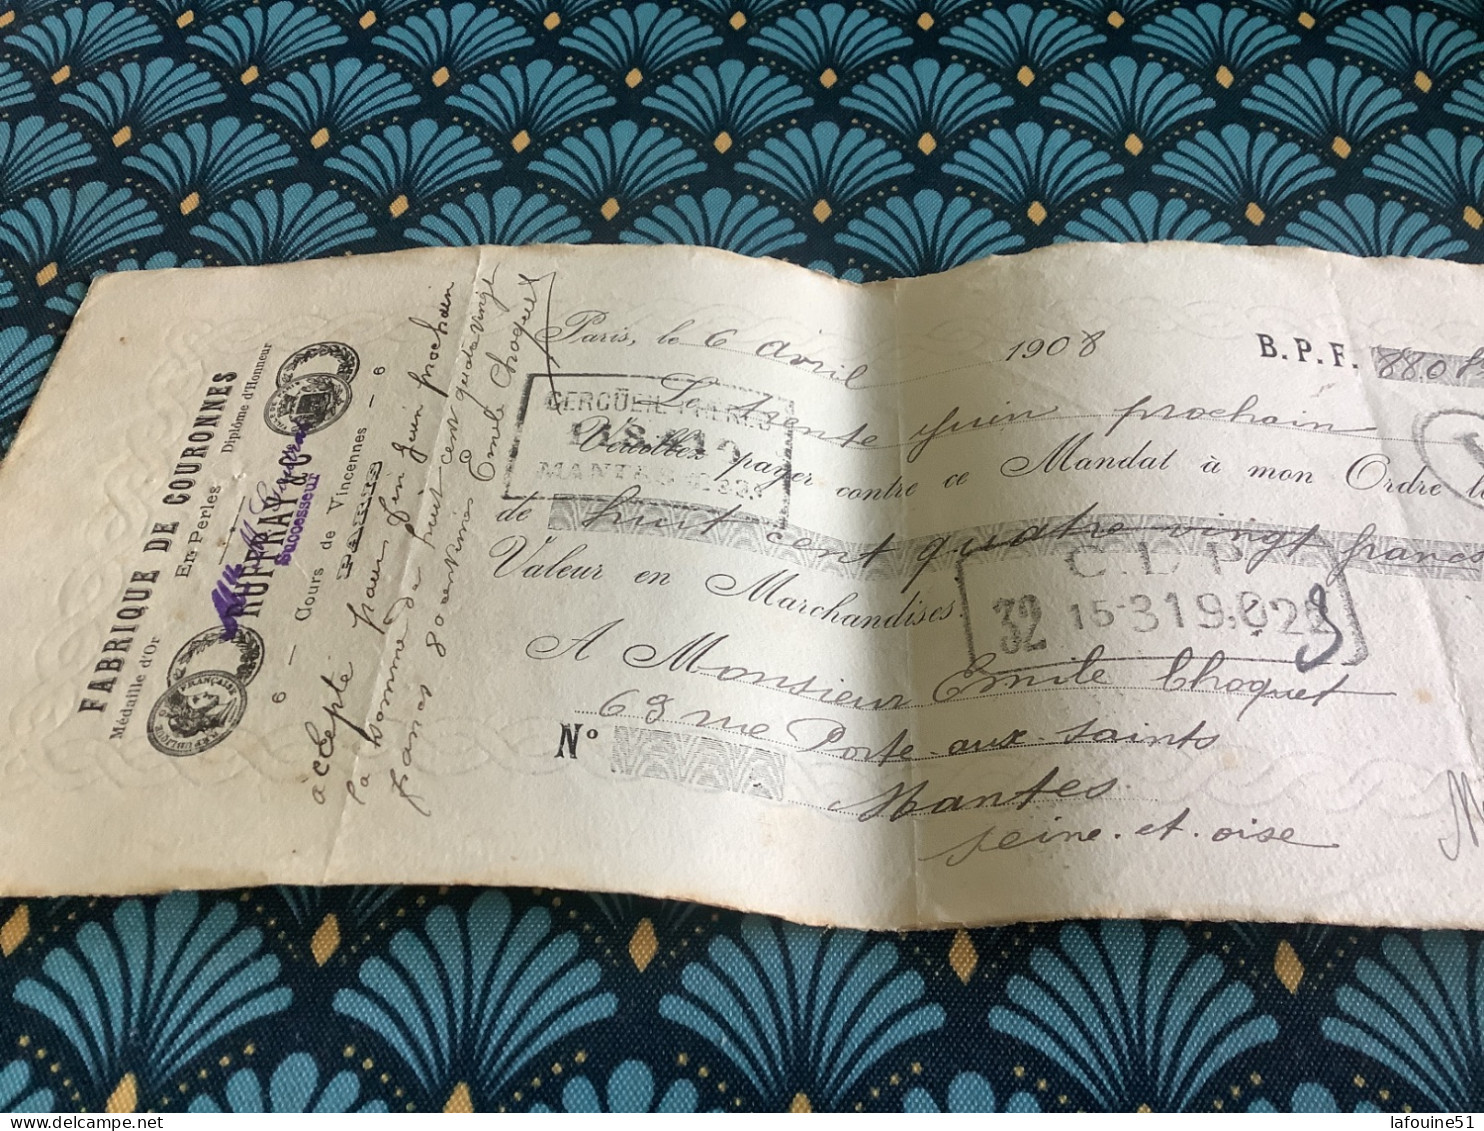 FABRIQUE DE COURONNES
En Perles
Médaille d'Or
Diplôme d'Honneur
RUFFRAY & C
Successeur
6 — Cours de Vincennes — 6
RÉPUBLIQUE FRANÇAISE
accepté pour fin juin prochain
la somme de huit cent quatre vingt
francs 80 centimes Emile Choquet
Paris, le 6 avril 1908 B.P.F. 880 8
Le trente juin prochain
Veuillez payer contre ce Mandat à mon Ordre
de huit cent quatre-vingt francs
Valeur en Marchandises.
A Monsieur Emile Choquet
63 rue Porte-aux-saints
Mantes
seine-et-oise
Nº
CERCÜEIL FRÈRES
C.L.P
32 15-319.022
lafouine51